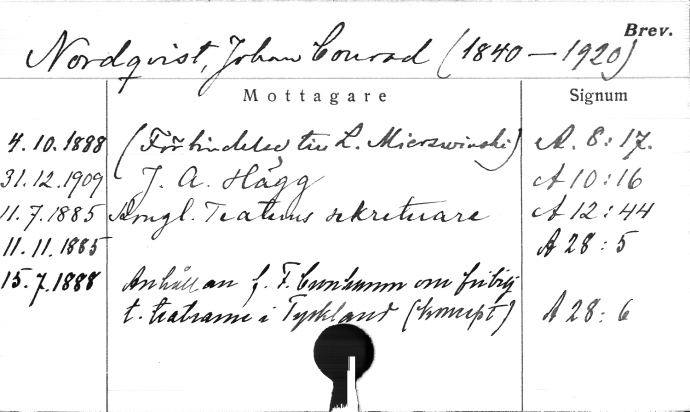 Brev.
Nordqvist, Johan Conrad (1840–1920)
Mottagare Signum
4.10.1888 (Förbindelse till L. Mierswinski) A. 8:17.
31.12.1909 J. A. Hägg A 10:16
11.7.1885 Kongl. Teaterns sekreterare A 12:44
11.11.1885 A 28:5
15.7.1888 Anhållan f. F. om fribilj
t. teatrarne i Tyskland (koncept) A 28:6